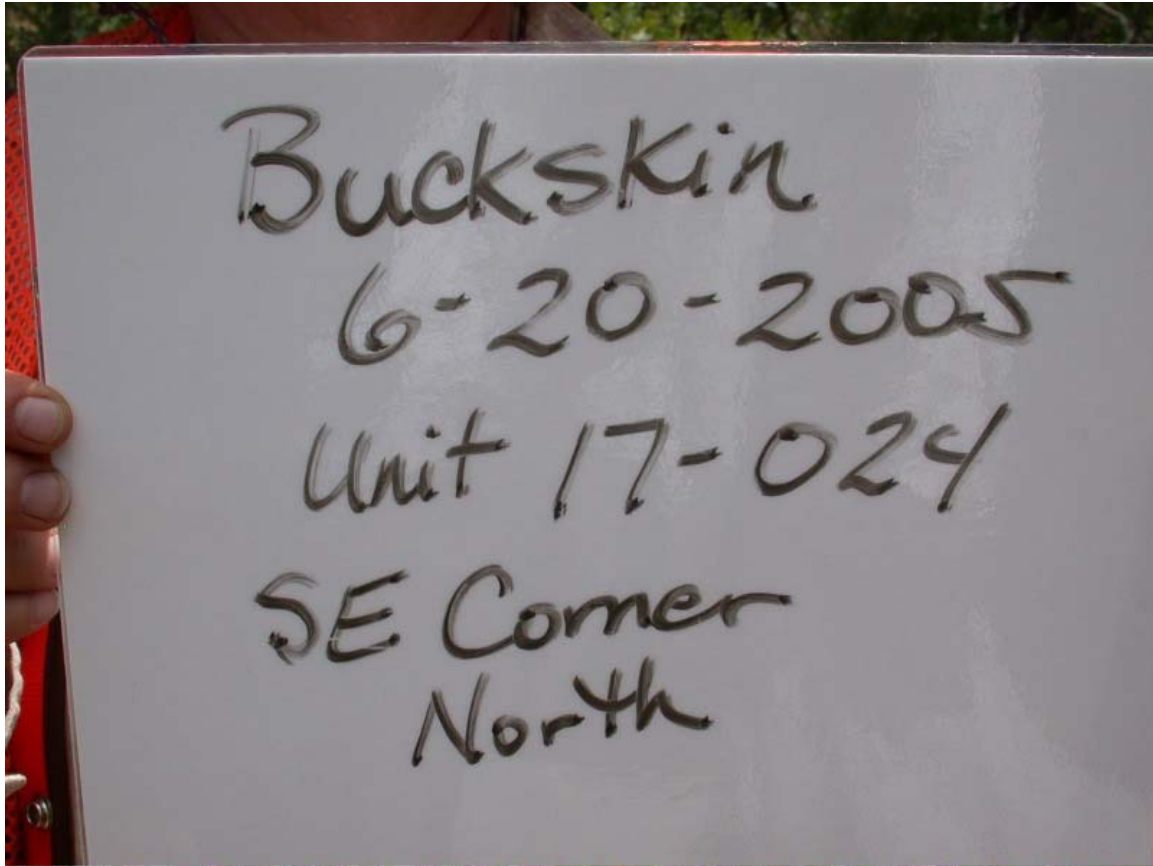 Buckskin
6-20-2005
Unit 17-024
SE Corner
North